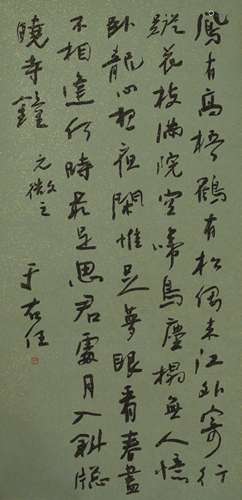 鳳有高梧鶴有松偶来江外寄行
蹤花枝满院空啼鳥塵榻無人憶
卧龍心想夜閑惟足夢眼看春盡
不相逢何時最是思君處月入斜窓
曉寺鐘
元微之
于右任